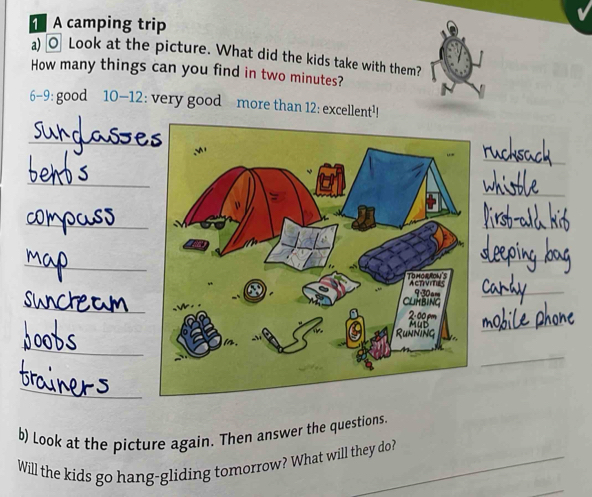 1 A camping trip
a) O Look at the picture. What did the kids take with them?
How many things can you find in two minutes?
6–9: good 10–12: very good more than 12: excellent¹!
sunglasses
tents
compass
map
suncream
boots
trainers
TOMORROW'S
ACTIVITIES
9:30am
CLIMBING
2:00pm
MUD
RUNNING
rucksack
whistle
first-aid kit
sleeping bag
candy
mobile phone
b) Look at the picture again. Then answer the questions.
Will the kids go hang-gliding tomorrow? What will they do?